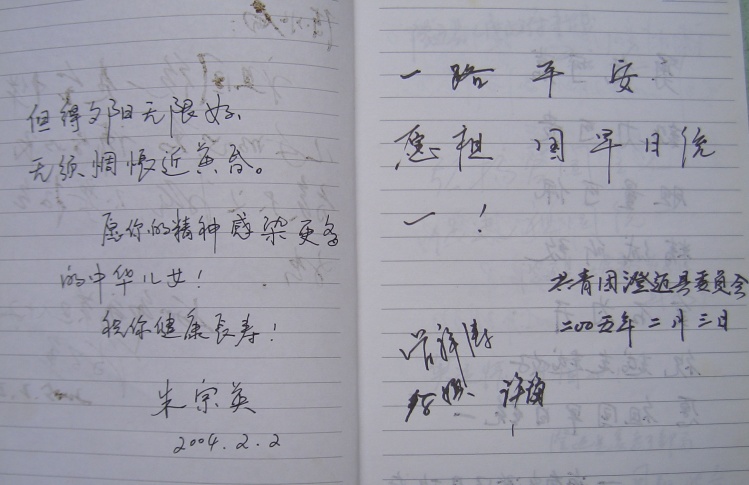 但得夕阳无限好,
无须惆怅近黄昏。
愿你的精神感染更多
的中华儿女!
祝你健康长寿!
朱宗英
2004.2.2
一路平安
愿祖国早日统
一!
共青团澄迈县委员会
二00五年二月三日